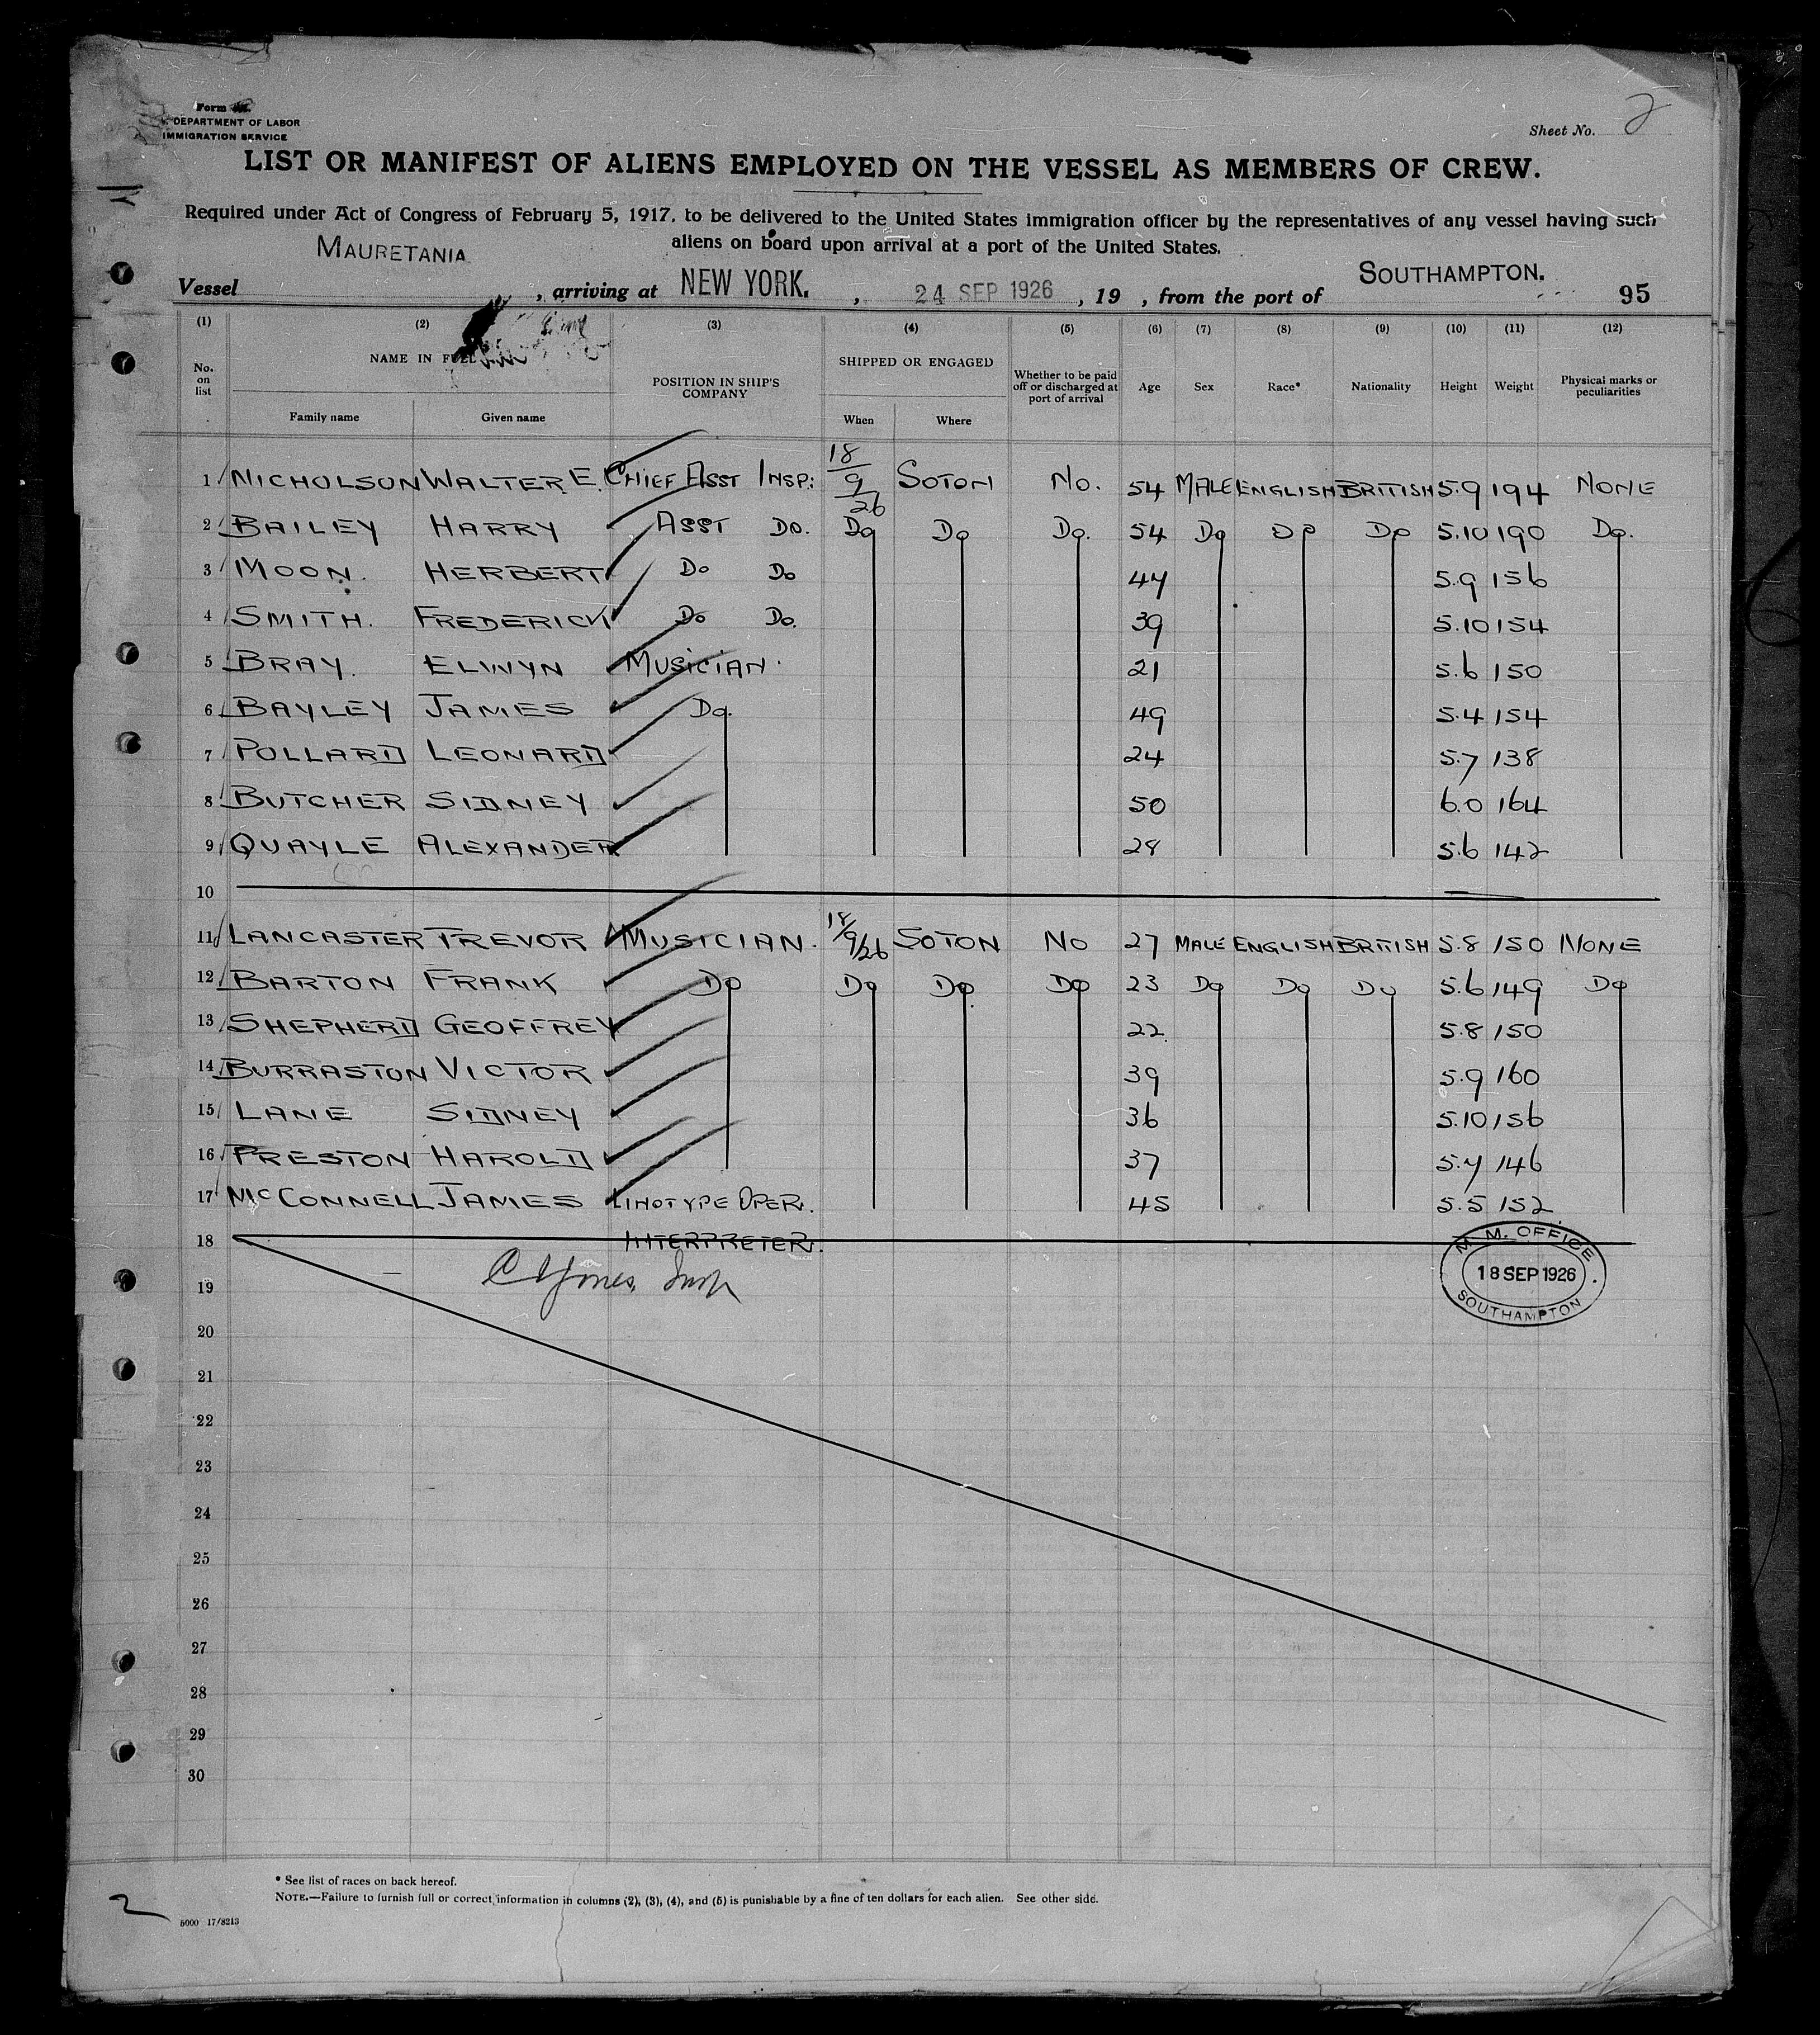 Form
DEPARTMENT OF LABOR
IMMIGRATION SERVICE
Sheet No. 2
LIST OR MANIFEST OF ALIENS EMPLOYED ON THE VESSEL AS MEMBERS OF CREW.
Required under Act of Congress of February 5, 1917, to be delivered to the United States immigration officer by the representatives of any vessel having such
aliens on board upon arrival at a port of the United States.
Vessel MAURETANIA, arriving at NEW YORK., 24 SEP 1926, 19 , from the port of SOUTHAMPTON. 95
(1) (2) (3) (4) (5) (6) (7) (8) (9) (10) (11) (12)
No. on list NAME IN FULL POSITION IN SHIP'S COMPANY SHIPPED OR ENGAGED Whether to be paid off or discharged at port of arrival Age Sex Race* Nationality Height Weight Physical marks or peculiarities
Family name Given name When Where
1 NICHOLSON WALTER E. CHIEF ASST INSP: 18/9/26 SOTON No. 54 MALE ENGLISH BRITISH 5.9 194 NONE
2 BAILEY HARRY ASST DO. Do Do Do. 54 Do Do Do 5.10 190 Do.
3 MOON. HERBERT Do Do 47 5.9 156
4 SMITH. FREDERICK Do Do. 39 5.10 154
5 BRAY. ELWYN MUSICIAN. 21 5.6 150
6 BAYLEY JAMES Do. 49 5.4 154
7 POLLARD LEONARD 24 5.7 138
8 BUTCHER SIDNEY 50 6.0 164
9 QUAYLE ALEXANDER 28 5.6 142
10
11 LANCASTER TREVOR MUSICIAN. 18/9/26 SOTON No 27 MALE ENGLISH BRITISH 5.8 150 NONE
12 BARTON FRANK Do Do Do Do 23 Do Do Do 5.6 149 Do
13 SHEPHERD GEOFFREY 22. 5.8 150
14 BURRASTON VICTOR 39 5.9 160
15 LANE SIDNEY 36 5.10 156
16 PRESTON HAROLD 37 5.7 146
17 McCONNELL JAMES LINOTYPE OPER. 45 5.5 152.
18 INTERPRETER.
19
M. M. OFFICE
18 SEP 1926
SOUTHAMPTON
20
21
22
23
24
25
26
27
28
29
30
* See list of races on back hereof.
NOTE.—Failure to furnish full or correct information in columns (2), (3), (4), and (5) is punishable by a fine of ten dollars for each alien. See other side.
2
5000 17/8213